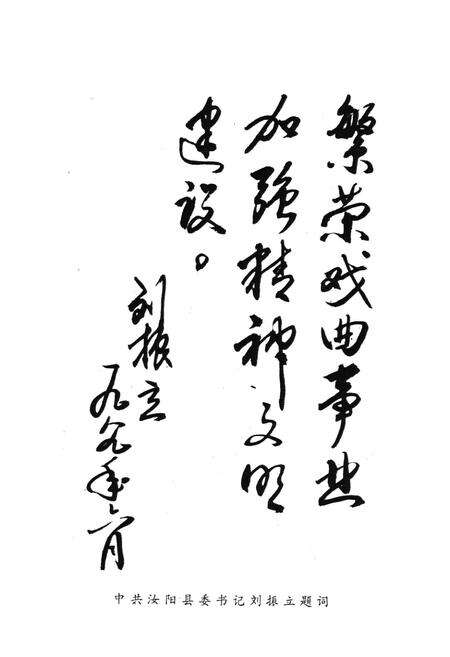 繁荣戏曲事业
加强精神文明
建设。
刘振立
一九八九年六月
中共汝阳县委书记刘振立题词